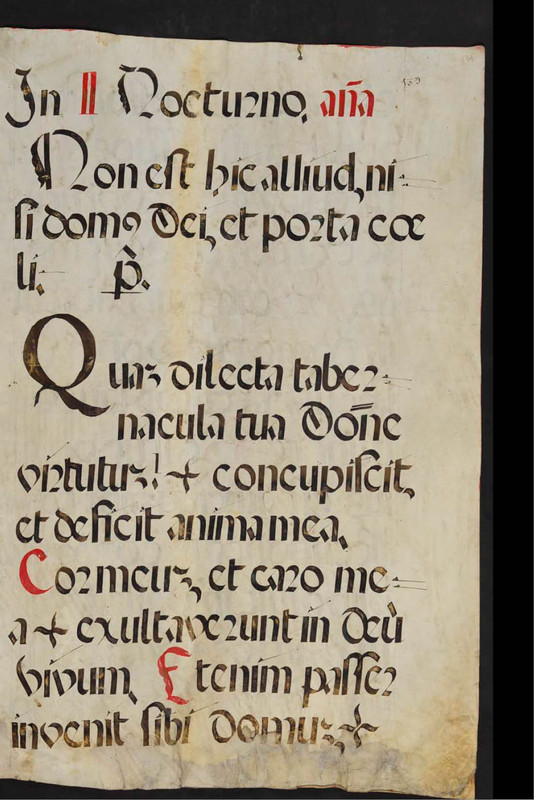 In II Nocturno, aña
Non est hic alliud, ni-
si domꝯ Dei, et porta cœ
li. p̂.
Quaʒ dilecta taber-
nacula tua Dōne
virtutuʒ! + concupiscit,
et deficit anima mea,
Cor meuʒ, et caro me-
a + exultaverunt in Deù
vivum, Etenim passer
invenit sibi domuʒ, +